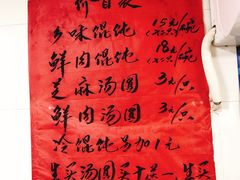 价目表
乡味馄饨 15元/碗
(12只)
鲜肉馄饨 18元/碗
(12只)
芝麻汤圆 3元/只
鲜肉汤圆 3元/只
冷馄饨另加1元
生买汤圆买十送一